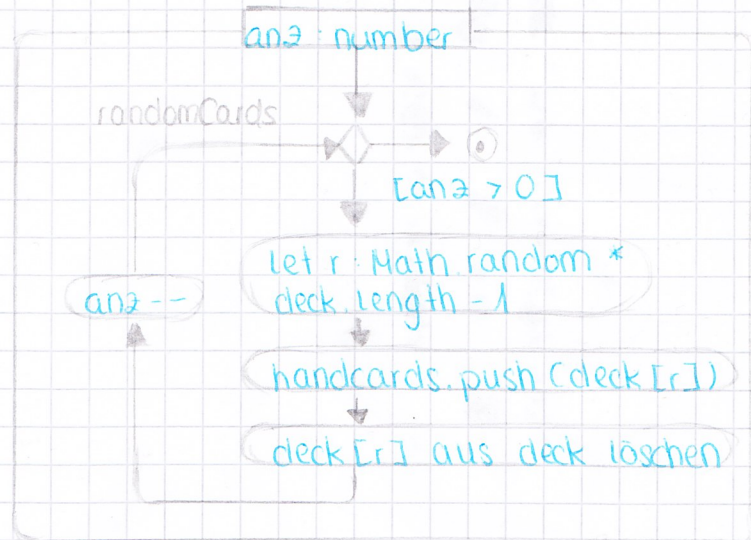 anz : number
randomCards
[anz > 0]
let r : Math.random *
deck.length - 1
anz --
handcards.push (deck [r])
deck [r] aus deck löschen